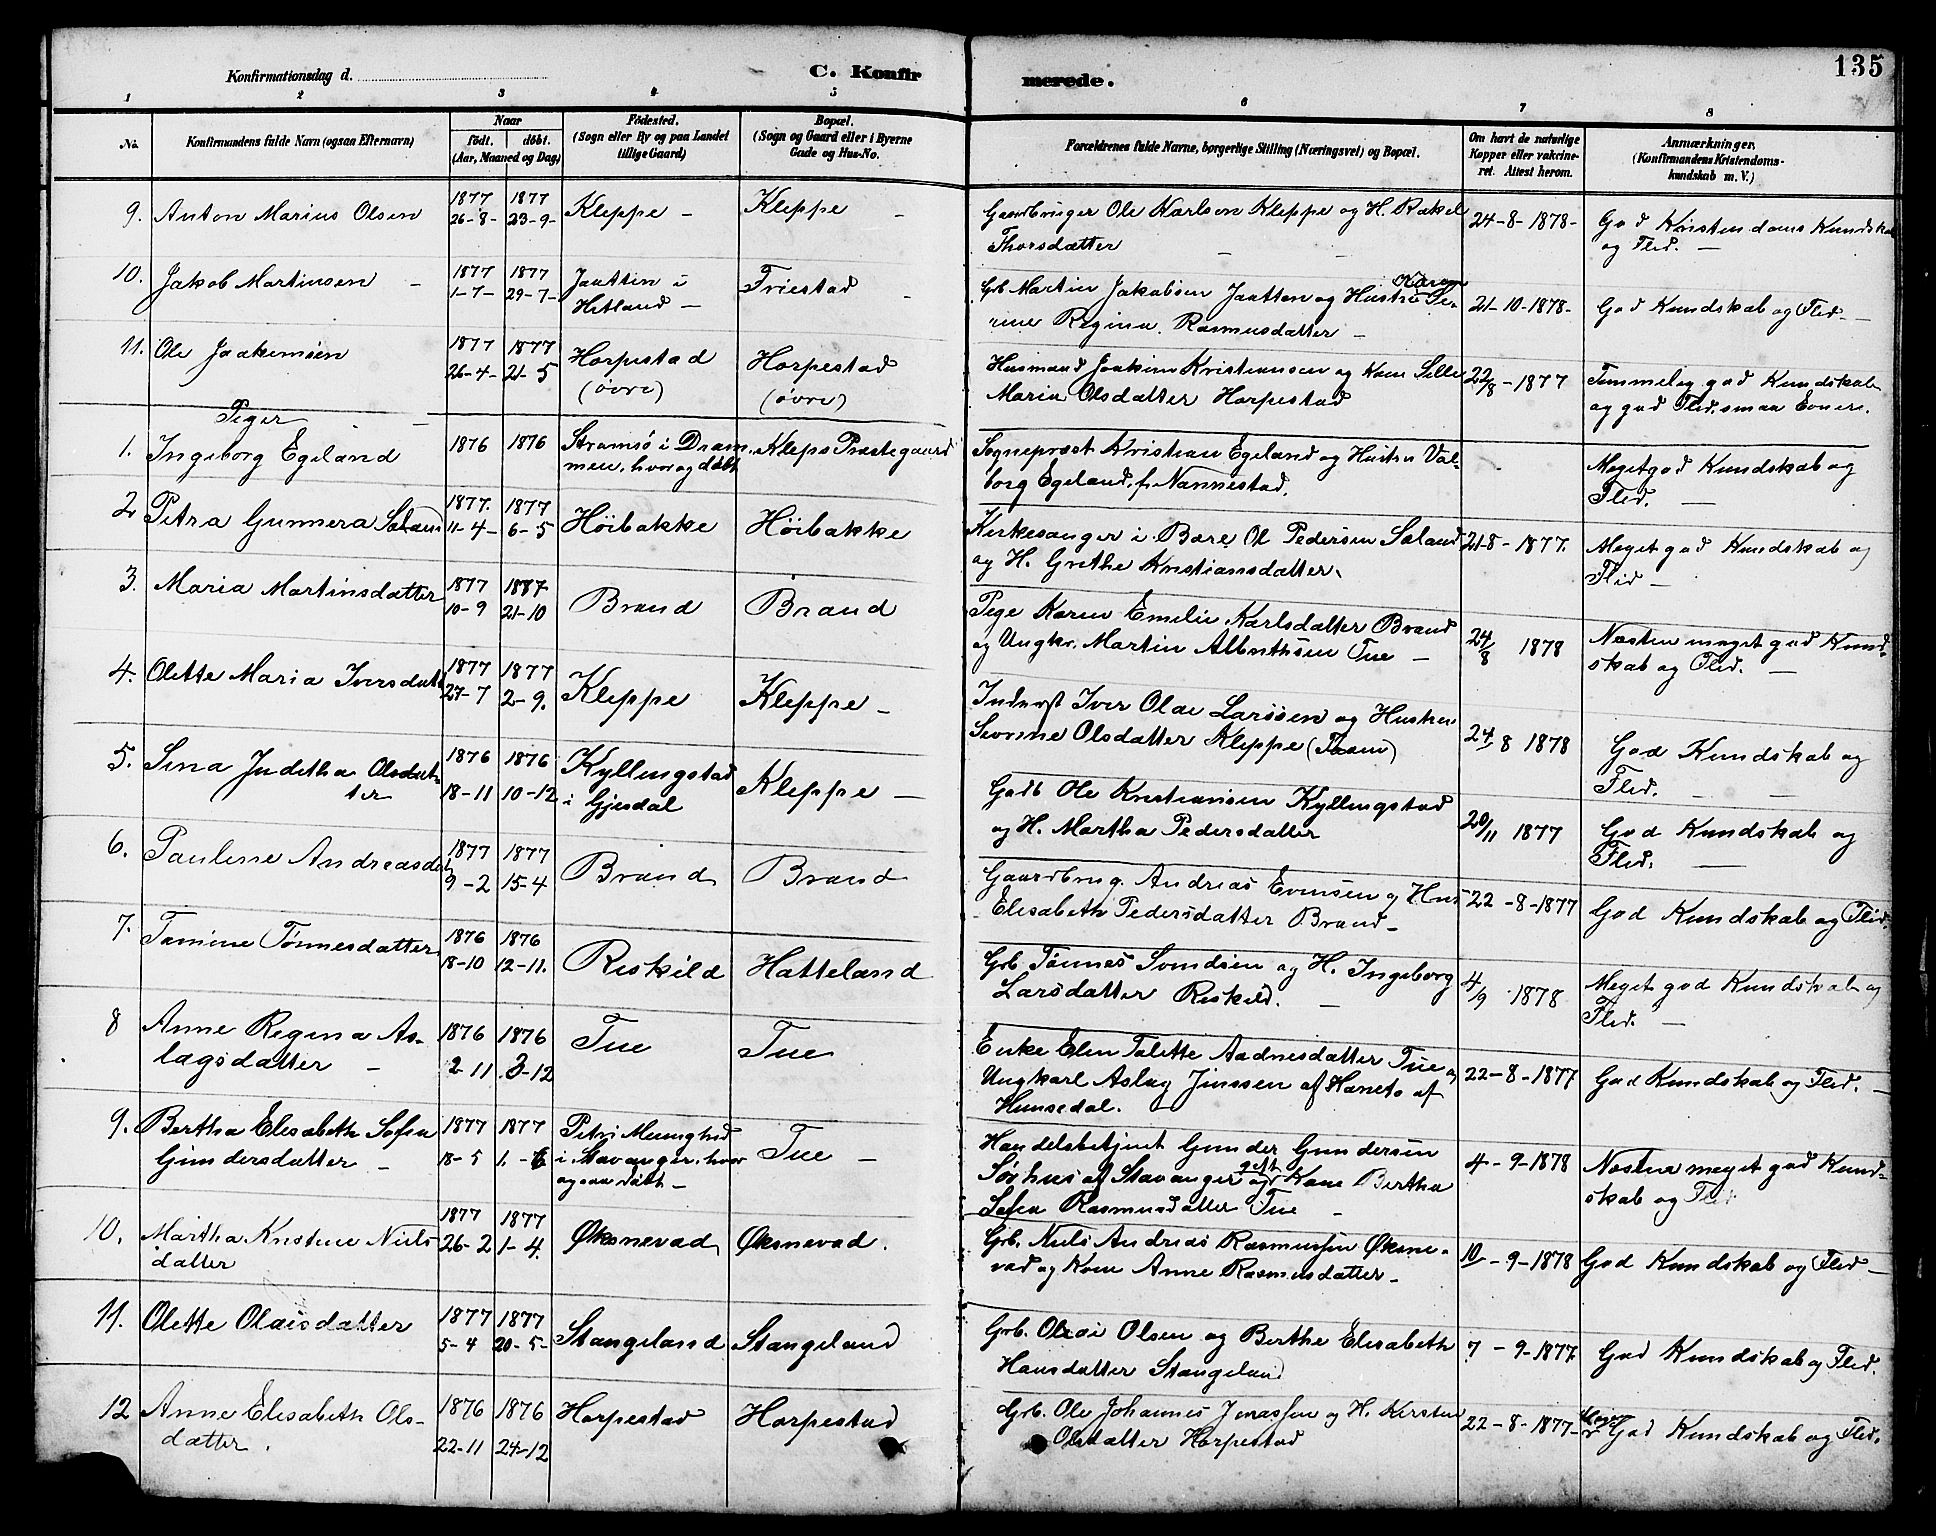 135
Konfirmationsdag d.
C. Konfir
merede.
1 2 3 4 5 6 7 8
No.
Konfirmandens fulde Navn (ogsaa Efternavn)
Naar
födt. döbt.
(Aar, Maaned og Dag)
Födested.
(Sogn eller By og paa Landet
tillige Gaard)
Bopæl.
(Sogn og Gaard eller i Byerne
Gade og Hus-No.
Forældrenes fulde Navne, borgerlige Stilling (Næringsvei) og Bopæl.
Om havt de naturlige
Kopper eller vakcine-
ret. Attest herom.
Anmærkninger.
(Konfirmandens Kristendoms-
kundskab m. V.)
9. Anton Marius Olsen 1877 26-8- 1877 23-9- Kleppe - Kleppe -
Gaardbruger Ole Karlsen Kleppe og H. Rakel
Thorsdatter
24-8-1878- God Kristendoms Kundskab
og Flid. -
10. Jakob Martinsen - 1877 1-7- 1877 29-7- Jaatten i
Hetland - Friestad -
Grb Martin Jakobsen Jaatten og Hustru Karen Se-
rine Regina Rasmusdatter -
21-10-1878- God Kundskab og Flid -
11. Ole Joakimsen 1877 26-4- 1877 21-5 Horpestad
(övre) Horpestad
(övre)
Husmand Joakim Kristiansen og Kone Sille
Maria Olsdatter Horpestad
22/8-1877 Temmelig god Kundskab
og god Flid. smaa Evner.
Piger
1. Ingeborg Egeland 1876 1876 Strømsö i Dram-
men, hvor og döbt Kleps Præstegaard
Sogneprest Kristian Egeland og Hustru Val-
borg Egeland, f. Nannestad.
Meget god Kundskab og
Flid. -
2 Petra Gunnera Sæland 1877. 11-4- 1877 6-5 Höibakke Höibakke
Kirkesanger i Bore Ol Pedersen Sæland
og H. Grethe Kristiansdatter.
21-8-1877. Meget god Kundskab og
Flid -
3. Maria Martinsdatter 1877 10-9 1877 21-10 Braud Braud
Pige Karen Emelie Karlsdatter Braud
og Ungkr. Martin Albrethsen Tue -
24/8 1878 Næsten meget god Kund-
skab og Flid. -
4. Olette Maria Iversdatt 1877 27-7 1877 2-9. Kleppe Kleppe -
Inderst Iver Olai Larssen og Hustru
Sevrine Olsdatter Kleppe
24/8 1878 God Kundskab og
Flid. -
5. Sina Juditha Olsdat-
ter 1876 18-11 1876 10-12 Kyllingstad
i Gjesdal Kleppe -
Gadb Ole Kristiansen Kyllingstad
og H. Martha Pedersdatter
20/11 1877 God Kundskab og
Flid. -
6. Pauline Andreasd 1877 9-2 1877 15-4 Braud Braud
Gaardbrug. Andreas Evensen og Hus
Elisabeth Pedersdatter Braud -
22-8-1877 God Kundskab og Flid.
7. Tomine Tönnesdatter 1876 18-10 1876 12-11. Reskild Hatteland
Grb Tönnes Svendsen og H. Ingeborg
Larsdatter Reskild. -
4/9 1878 Meget god Kundskab og
Flid. -
8 Anne Regina As-
lagsdatter - 1876 2-11 1876 3-12 Tue Tue
Enke Elen Talette Aadnesdatter Tue og
Ungkarl Aslag Jenssen af Haneto af
Hunsedal.
22-8-1877 God Kundskab og Flid. -
9. Bertha Elisabeth Sofia
Gundersdatter - 1877 18-5 1877 1.-6 Petri Menighed
i Stavanger, hvor
ogsaa döbt - Tue -
Handelsbetjent Gunder Gundersen
Sörhus af Stavanger og gift Kone Bertha
Sofia Rasmusdatter Tue -
4-9-1878 Næsten meget god Kund-
skab og Flid
10. Martha Kristine Niels
datter 1877 26-2 1877 1-4. Øksnevad Øksnevad.
Grb. Niels Andreas Rasmussen Øksne-
vad og Kone Anne Rasmusdatter -
10-9-1878 God Kundskab og Flid -
11. Olette Olaisdatter 1877 5-4 1877 20-5- Stangeland Stangeland
Grb. Olai Olsen og Berthe Elisabeth
Hansdatter Stangeland
7-9-1877. God Kundskab og Flid.
12 Anne Elisabeth Ols-
datter. 1876 22-11 1876 24-12 Horpestad Horpestad
Grb. Ole Johannes Jonassen og H. Kirsten
Olsdatter Horpestad
22-8-1877- Meget God Kundskab og Flid.